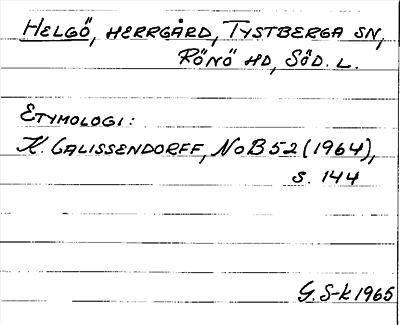 HELGÖ, HERRGÅRD, TYSTBERGA SN,
RÖNÖ HD, SÖD. L.
ETYMOLOGI:
K. CALISSENDORFF, NoB 52 (1964),
S. 144
G. S-k 1965